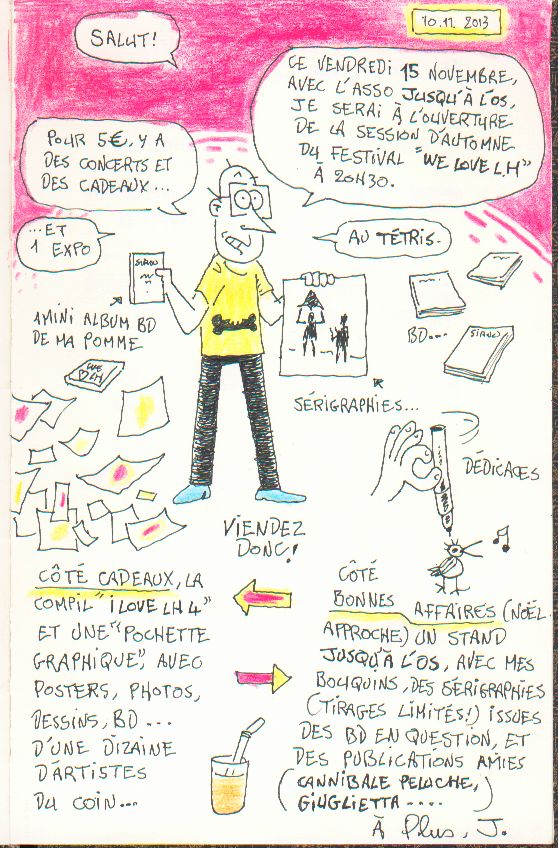 10.11 2013
SALUT!
CE VENDREDI 15 NOVEMBRE,
AVEC L'ASSO JUSQU'À L'OS,
JE SERAI À L'OUVERTURE
DE LA SESSION D'AUTOMNE
DU FESTIVAL "WE LOVE L.H"
À 20H30.
POUR 5€, Y A
DES CONCERTS ET
DES CADEAUX...
...ET
1 EXPO
AU TÉTRIS.
1 MINI ALBUM BD
DE MA POMME
WE
LH
BD...
SÉRIGRAPHIES...
DÉDICACES
VIENDEZ
DONC!
CÔTÉ CADEAUX, LA
COMPIL "I LOVE LH 4"
ET UNE "POCHETTE
GRAPHIQUE", AVEC
POSTERS, PHOTOS,
DESSINS, BD...
D'UNE DIZAINE
D'ARTISTES
DU COIN...
CÔTÉ
BONNES
AFFAIRES (NOËL
APPROCHE) UN STAND
JUSQU'À L'OS, AVEC MES
BOUQUINS, DES SÉRIGRAPHIES
(TIRAGES LIMITÉS!) ISSUES
DES BD EN QUESTION, ET
DES PUBLICATIONS AMIES
(CANNIBALE PELUCHE,
GIUGLIETTA....)
À Plus, J.